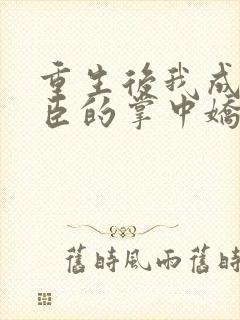 重生後我成
臣的掌中嬌
舊時風雨舊時